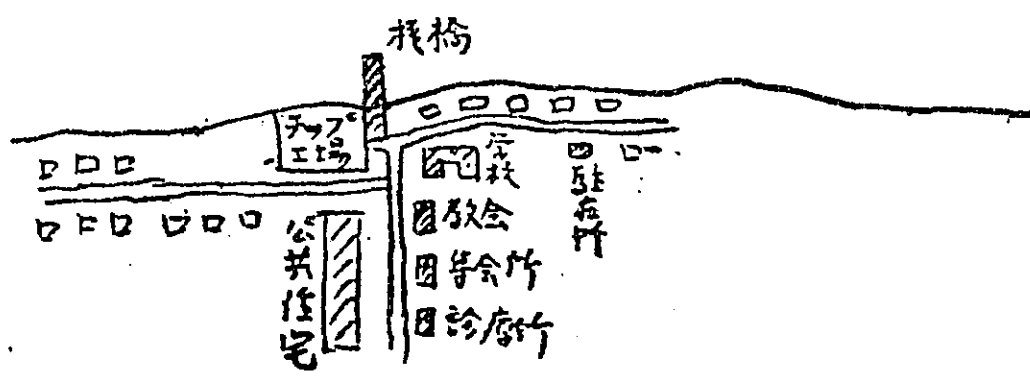 桟橋
チップ
工場
学校
駐在所
教会
集会所
診療所
公共住宅